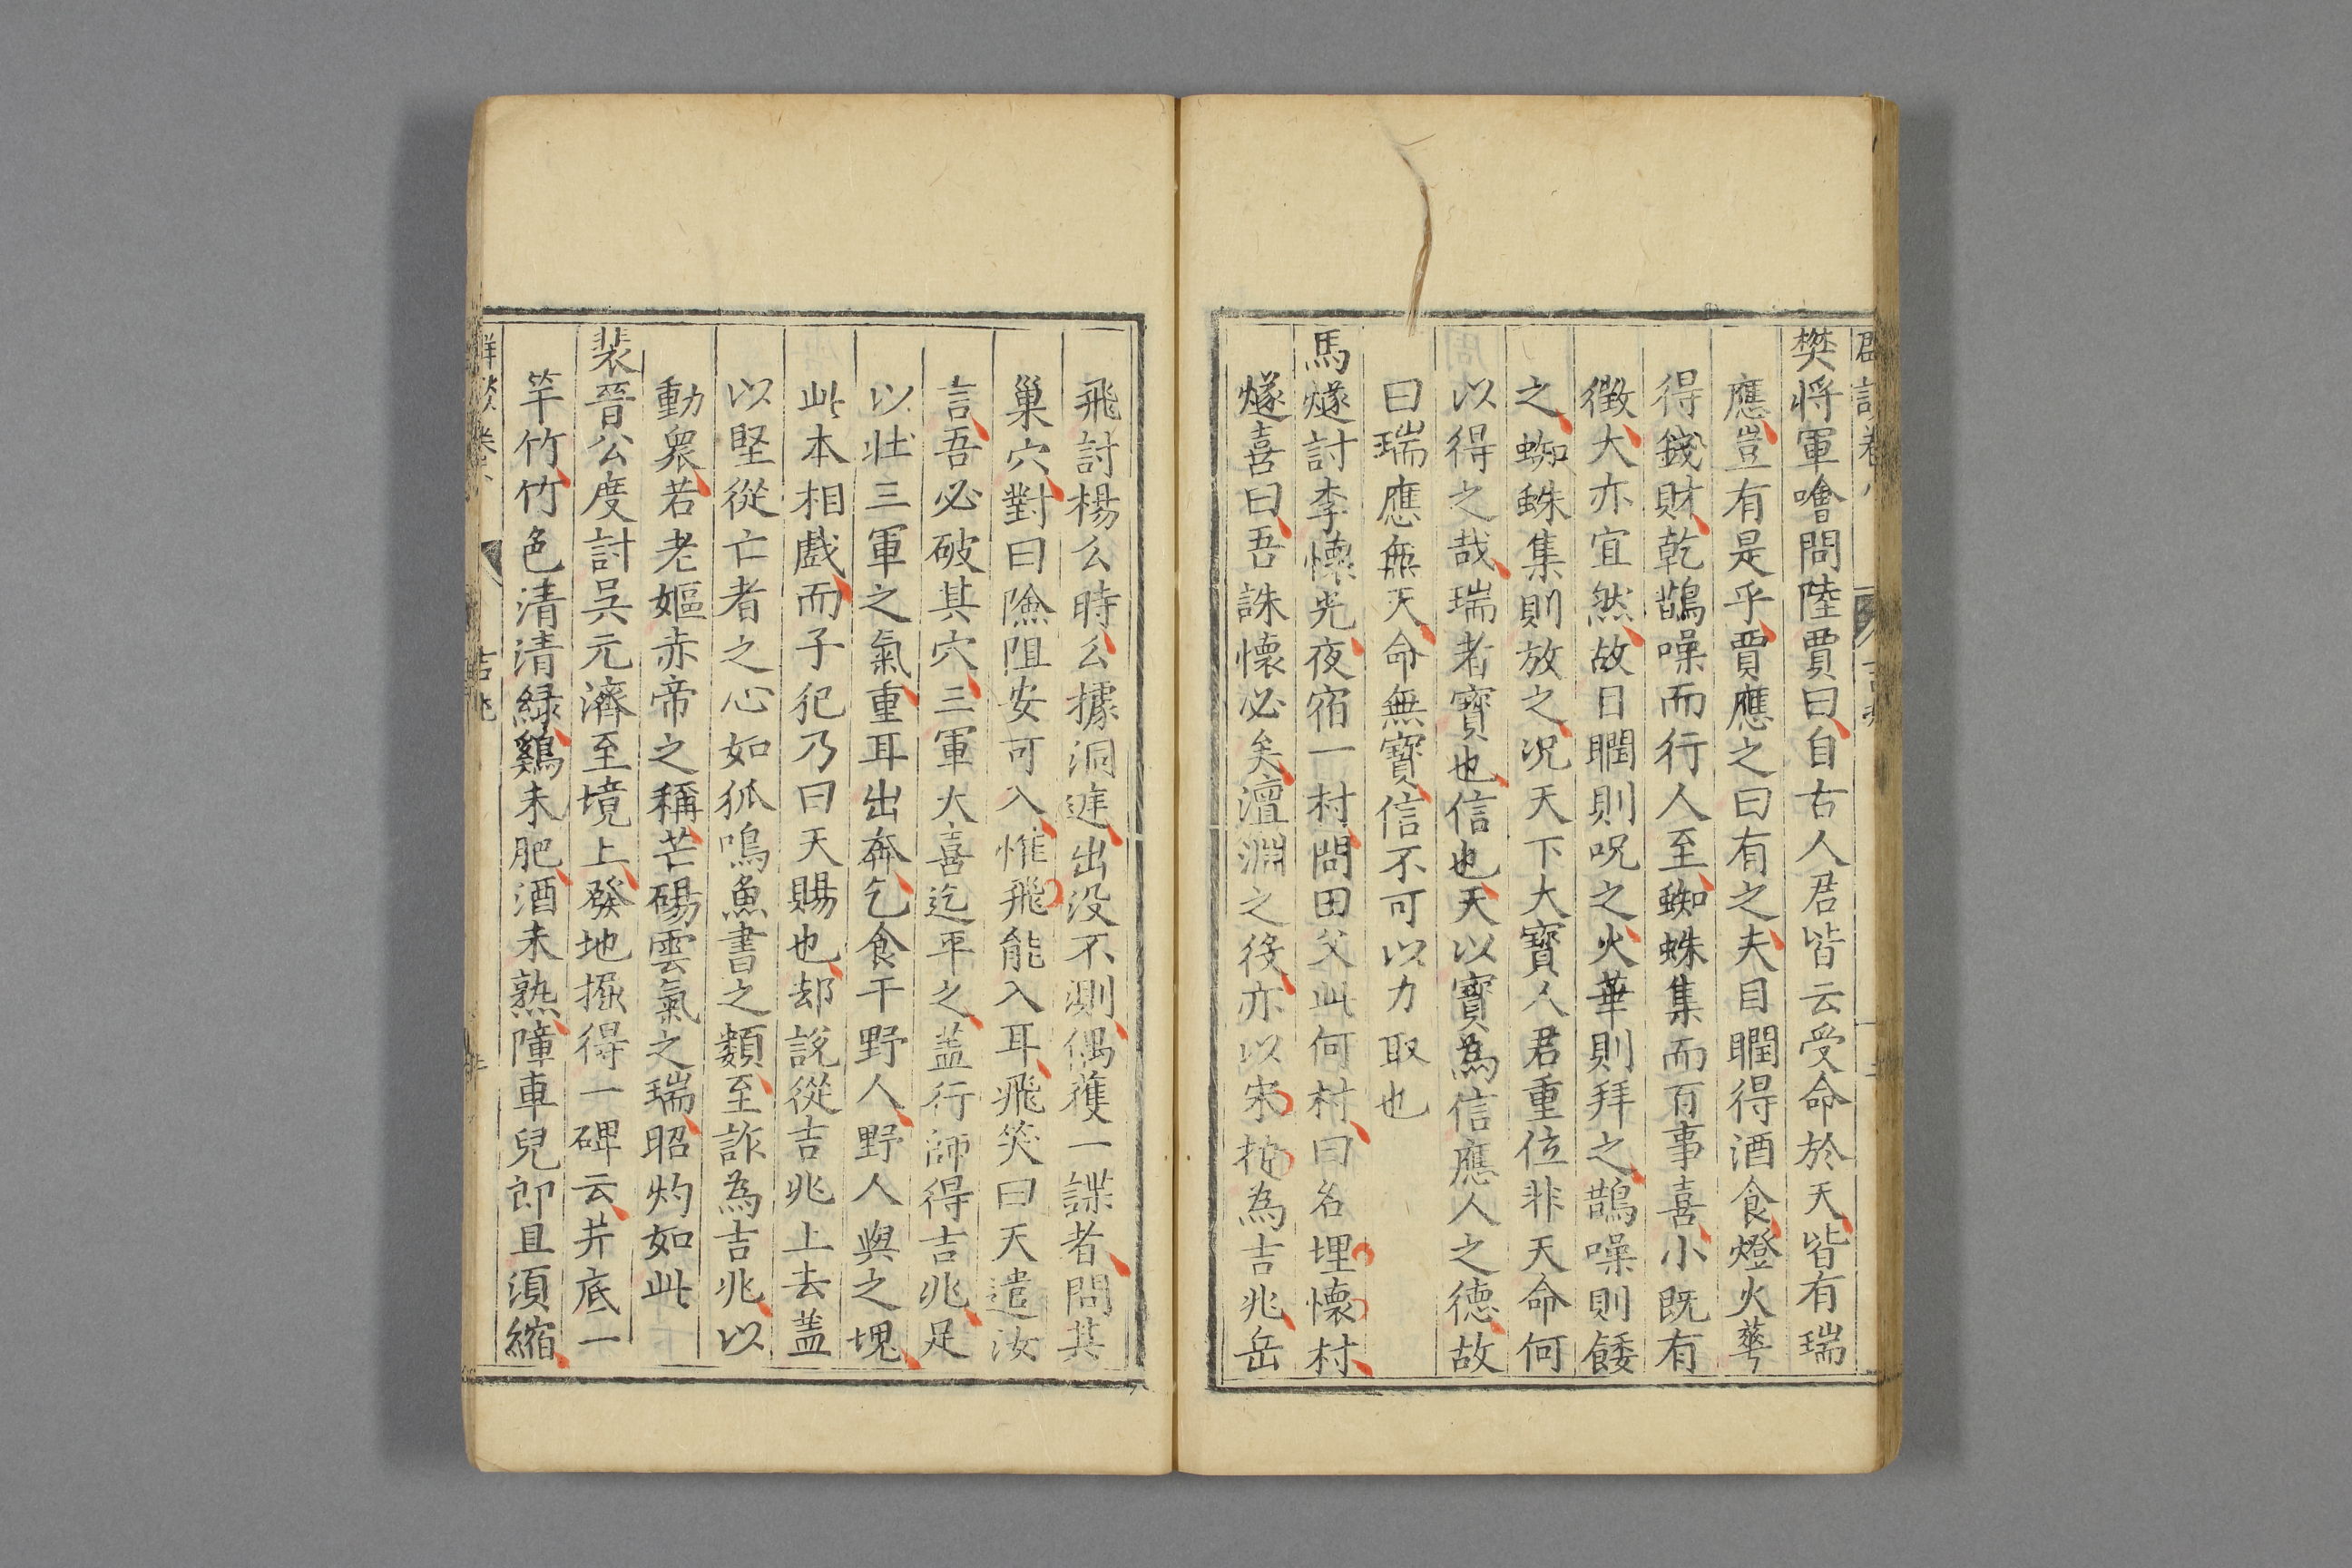 樊將軍噲問陸賈曰自古人君皆云受命於天皆有瑞
應豈有是乎賈應之曰有之夫目瞤得酒食燈火蕚
得錢財乾鵲噪而行人至蜘蛛集而百事喜小既有
徵大亦宜然故日瞤則呪之火華則拜之鵲噪則餧
之蜘蛛集則放之况天下大寳人君重位非天命何
以得之哉瑞者寳也信也天以寳為信應人之德故
曰瑞應無天命無寳信不可以力取也
馬燧討李懷光夜宿一村問田父此何村曰名埋懷村
燧喜曰吾誅懷必矣澶淵之役亦以宋捉為吉兆岳
飛討楊么時么據洞遳出没不測偶獲一諜者問其
巢穴對曰險阻安可入惟飛能入耳飛笑曰天遣汝
言吾必破其穴三軍大喜迄平之盖行師得吉兆足
以壮三軍之氣重耳出奔乞食于野人野人與之塊
此本相戲而子犯乃曰天賜也却說從吉兆上去盖
以堅從亡者之心如狐鳴魚書之類至詐為吉兆以
動衆若老嫗赤帝之稱芒碭雲氣之瑞昭灼如此
裴晉公度討吳元濟至境上發地掘得一碑云井底一
竿竹竹色清清緑鷄未肥酒未熟障車兒郎且須縮